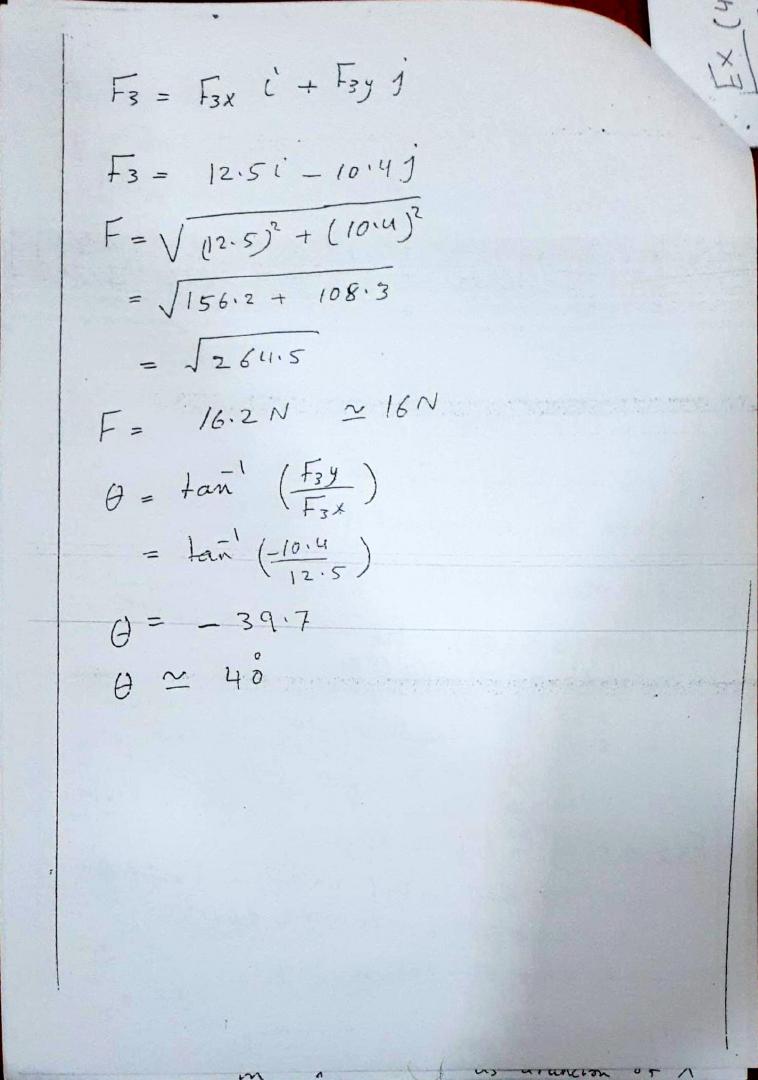 F3 = F3x i + F3y j
F3 = 12.5 i - 10.4 j
F = √(12.5)² + (10.4)²
= √156.2 + 108.3
= √264.5
F = 16.2 N ≃ 16 N
θ = tan⁻¹ (F3y / F3x)
= tan⁻¹ (-10.4 / 12.5)
θ = - 39.7
θ ≃ 40°
Ex (4
as function of